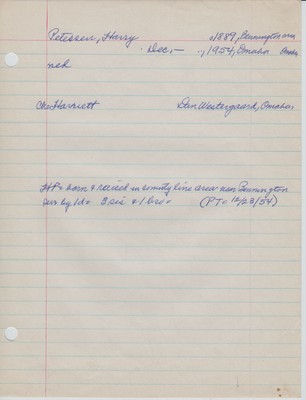 Petersen, Harry 01889, Bennington area
Dec, — .., 1954, Omaha Omaha
ned
Ch: Harriett Dan Westergaard, Omaha.
HP born & raised in county line area near Bennington
sur by 1 da 3 sis & 1 bro. (PT 12/28/54)